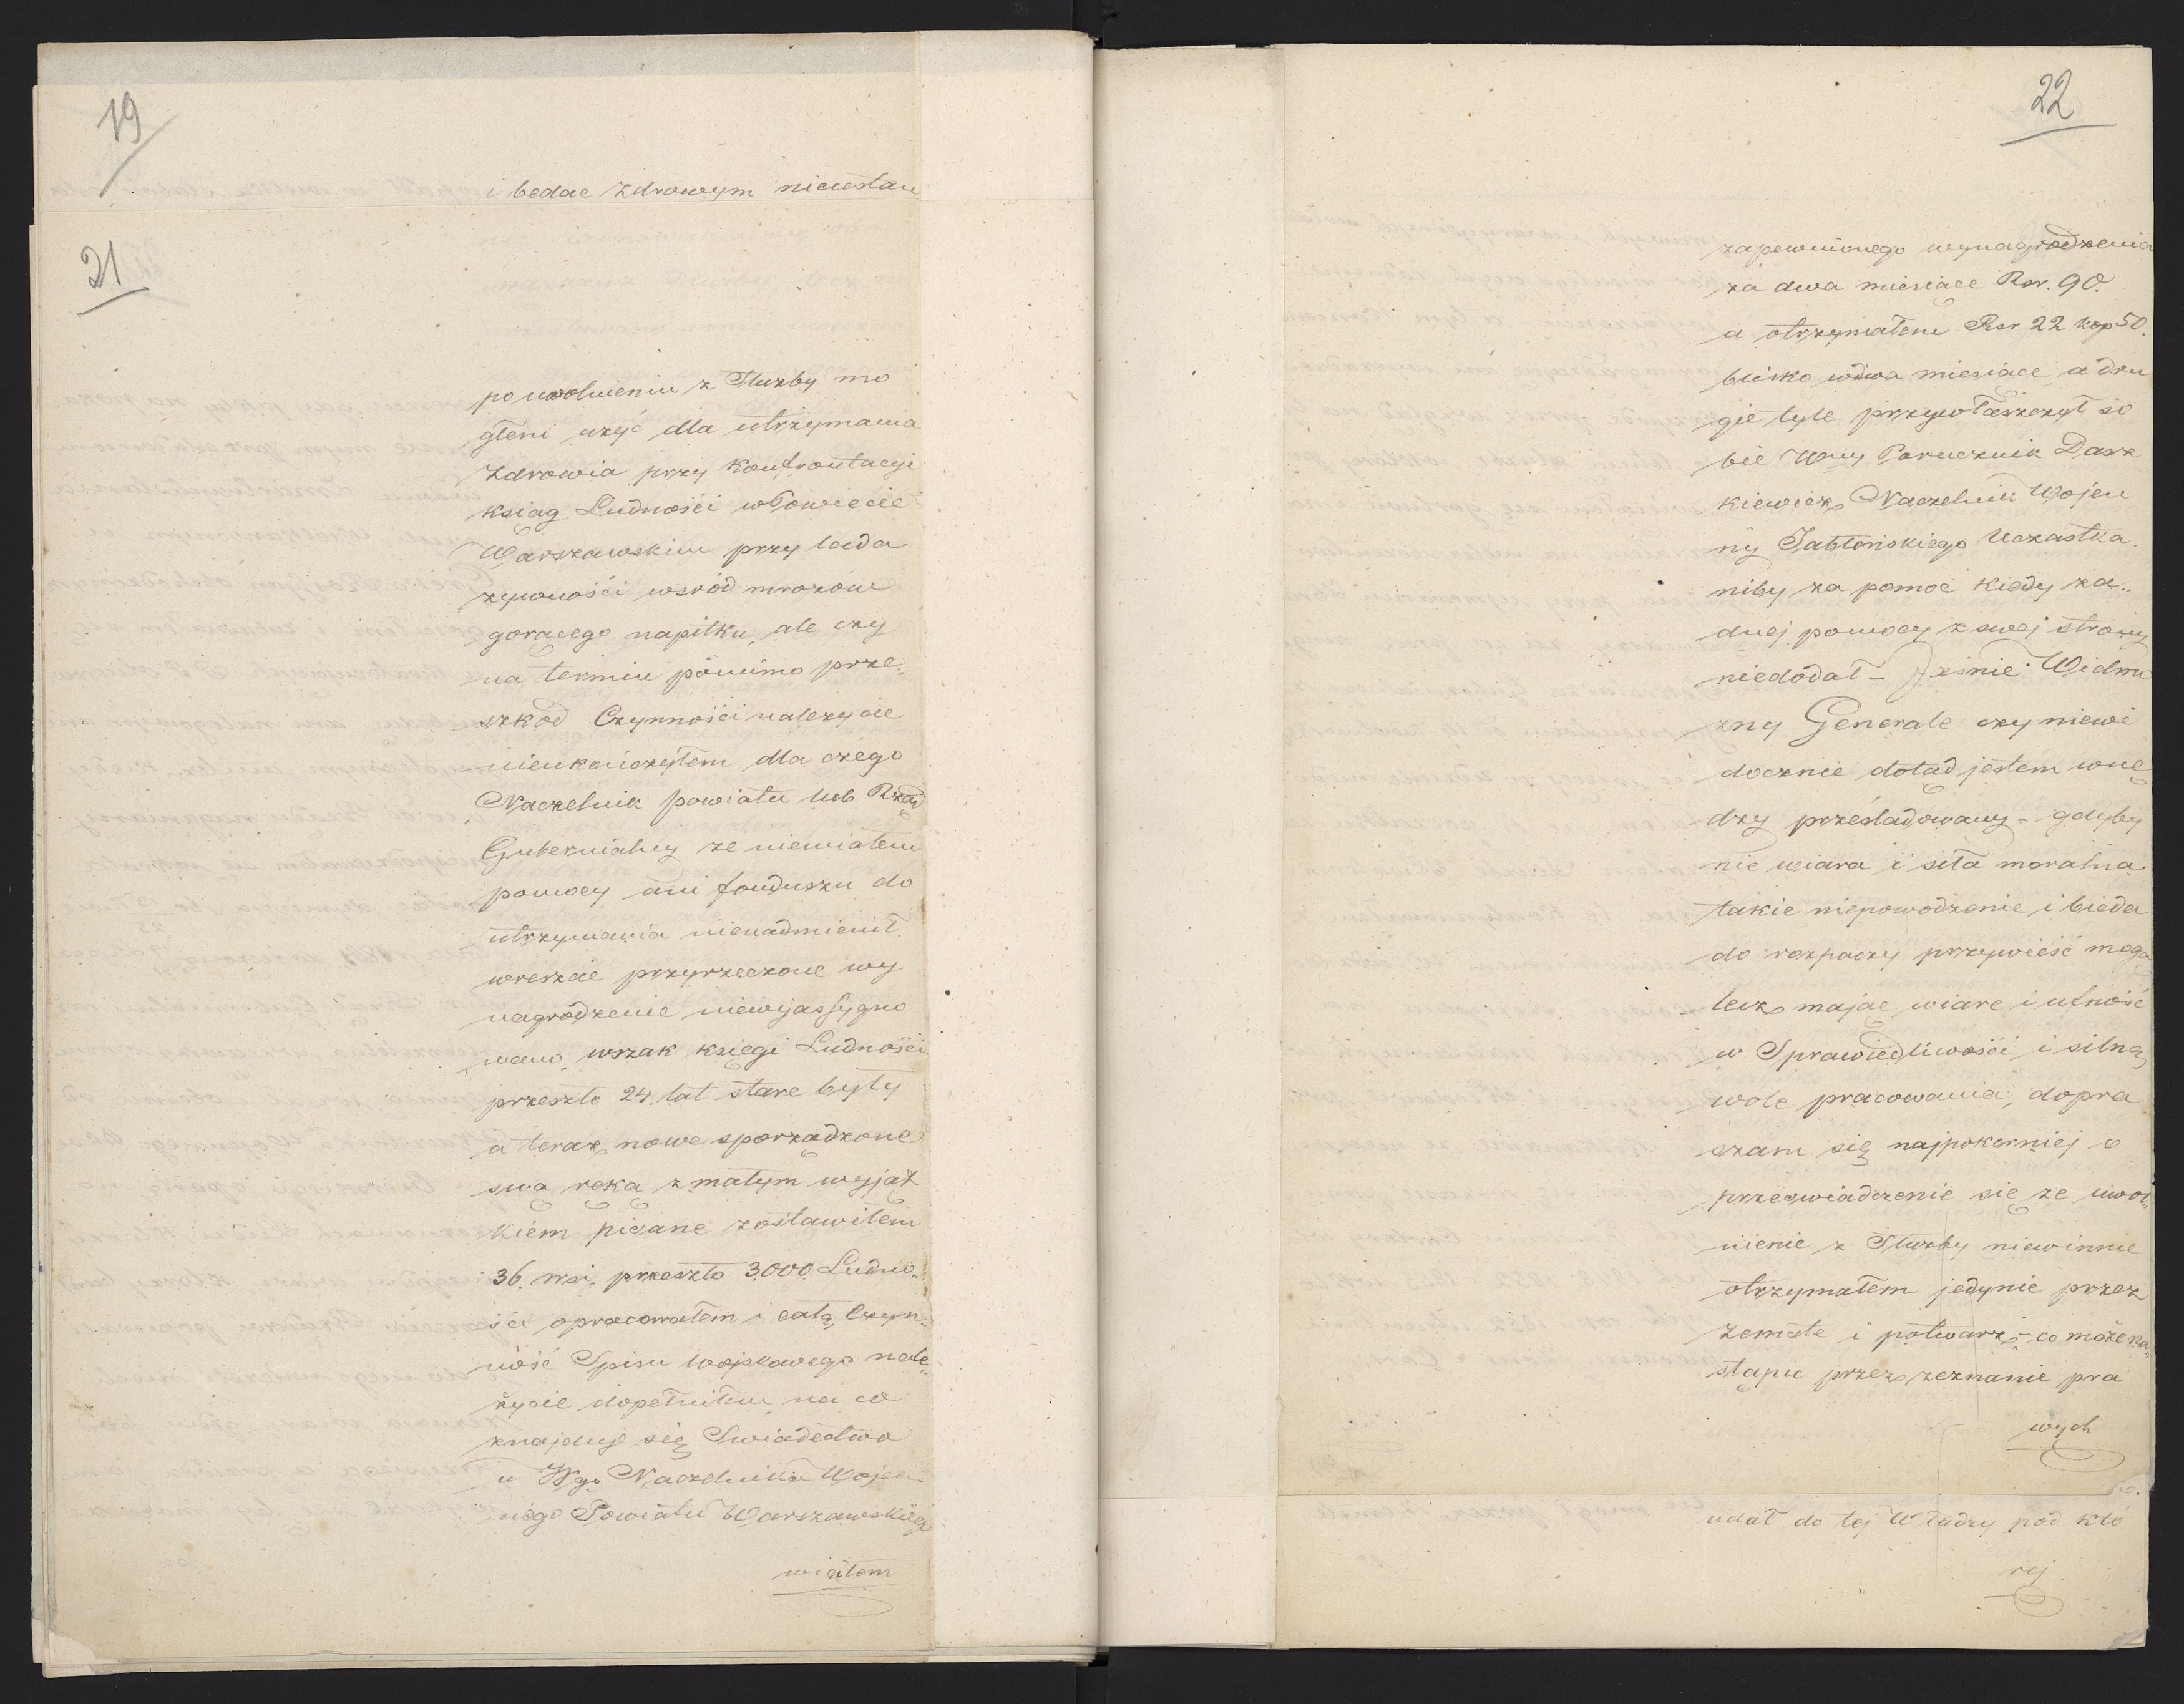 19
i bedac zdrowym nieustan
21
po uwolnieniu z Służby mo
głem użyć dla utrzymania
Zdrowia przy Konfrontacyi
ksiąg Ludności w Powiecie
Warszawskim przy leda
żywności wsród mrozów
gorącego napitku, ale czy
na termin pomimo prze„
szkód Czynności należycie
nieukończyłem dla czego
Naczelnik powiatu lub Rząd
Gubernialny że niemiałem
pomocy ani funduszu do
utrzymania nienadmienił.
wreszcie przyrzeczone wy
nagrodzenie niewyassygno
wano, wszak księgi Ludności
przeszło 24. lat stare były
a teraz nowe sporządzone
swą ręką z małym wyjąt
kiem pisane zostawiłem
36. wsi, przeszło 3000. Ludno„
ści opracowałem i całą Czyn„
ność Spisu wojskowego nale„
życie dopełniłem na co
znajduje się Swiadectwo
u Wgo Naczelnika Wojen
nego Powiatu Warszawskiego
miałem
22
zapewnionego wynagrodzenia
za dwa miesiące Rsr. 90.
a otrzymałem Rsr 22 kop 50.
blisko w dwa miesiące a dru
gie tyle przywłaszczył so
bie Wny Porucznik Dasz
kiewicz Naczelnik Wojen
ny Jabłońskiego Uczastka
niby za pomoc kiedy ża„
dnej pomocy z swej strony
niedodał – Jaśnie Wielmo
żny Generale czy niewi
docznie dotąd jestem w nę
dzy prześladowany – gdyby
nie wiara i siła moralna
takie niepowodzenie i bieda
do rozpaczy przywieść mogą
lecz mając wiarę i ufność
w Sprawiedliwości i silną
wole pracowania, dopra
szam się najpokorniej o
przeswiadczenie się że uwol„
nienie z Służby niewinnie
otrzymałem jedynie przez
zemstę i potwarz – co może na„
stąpić przez zeznanie pra
wych
udał do tej Władzy pod któ
rej